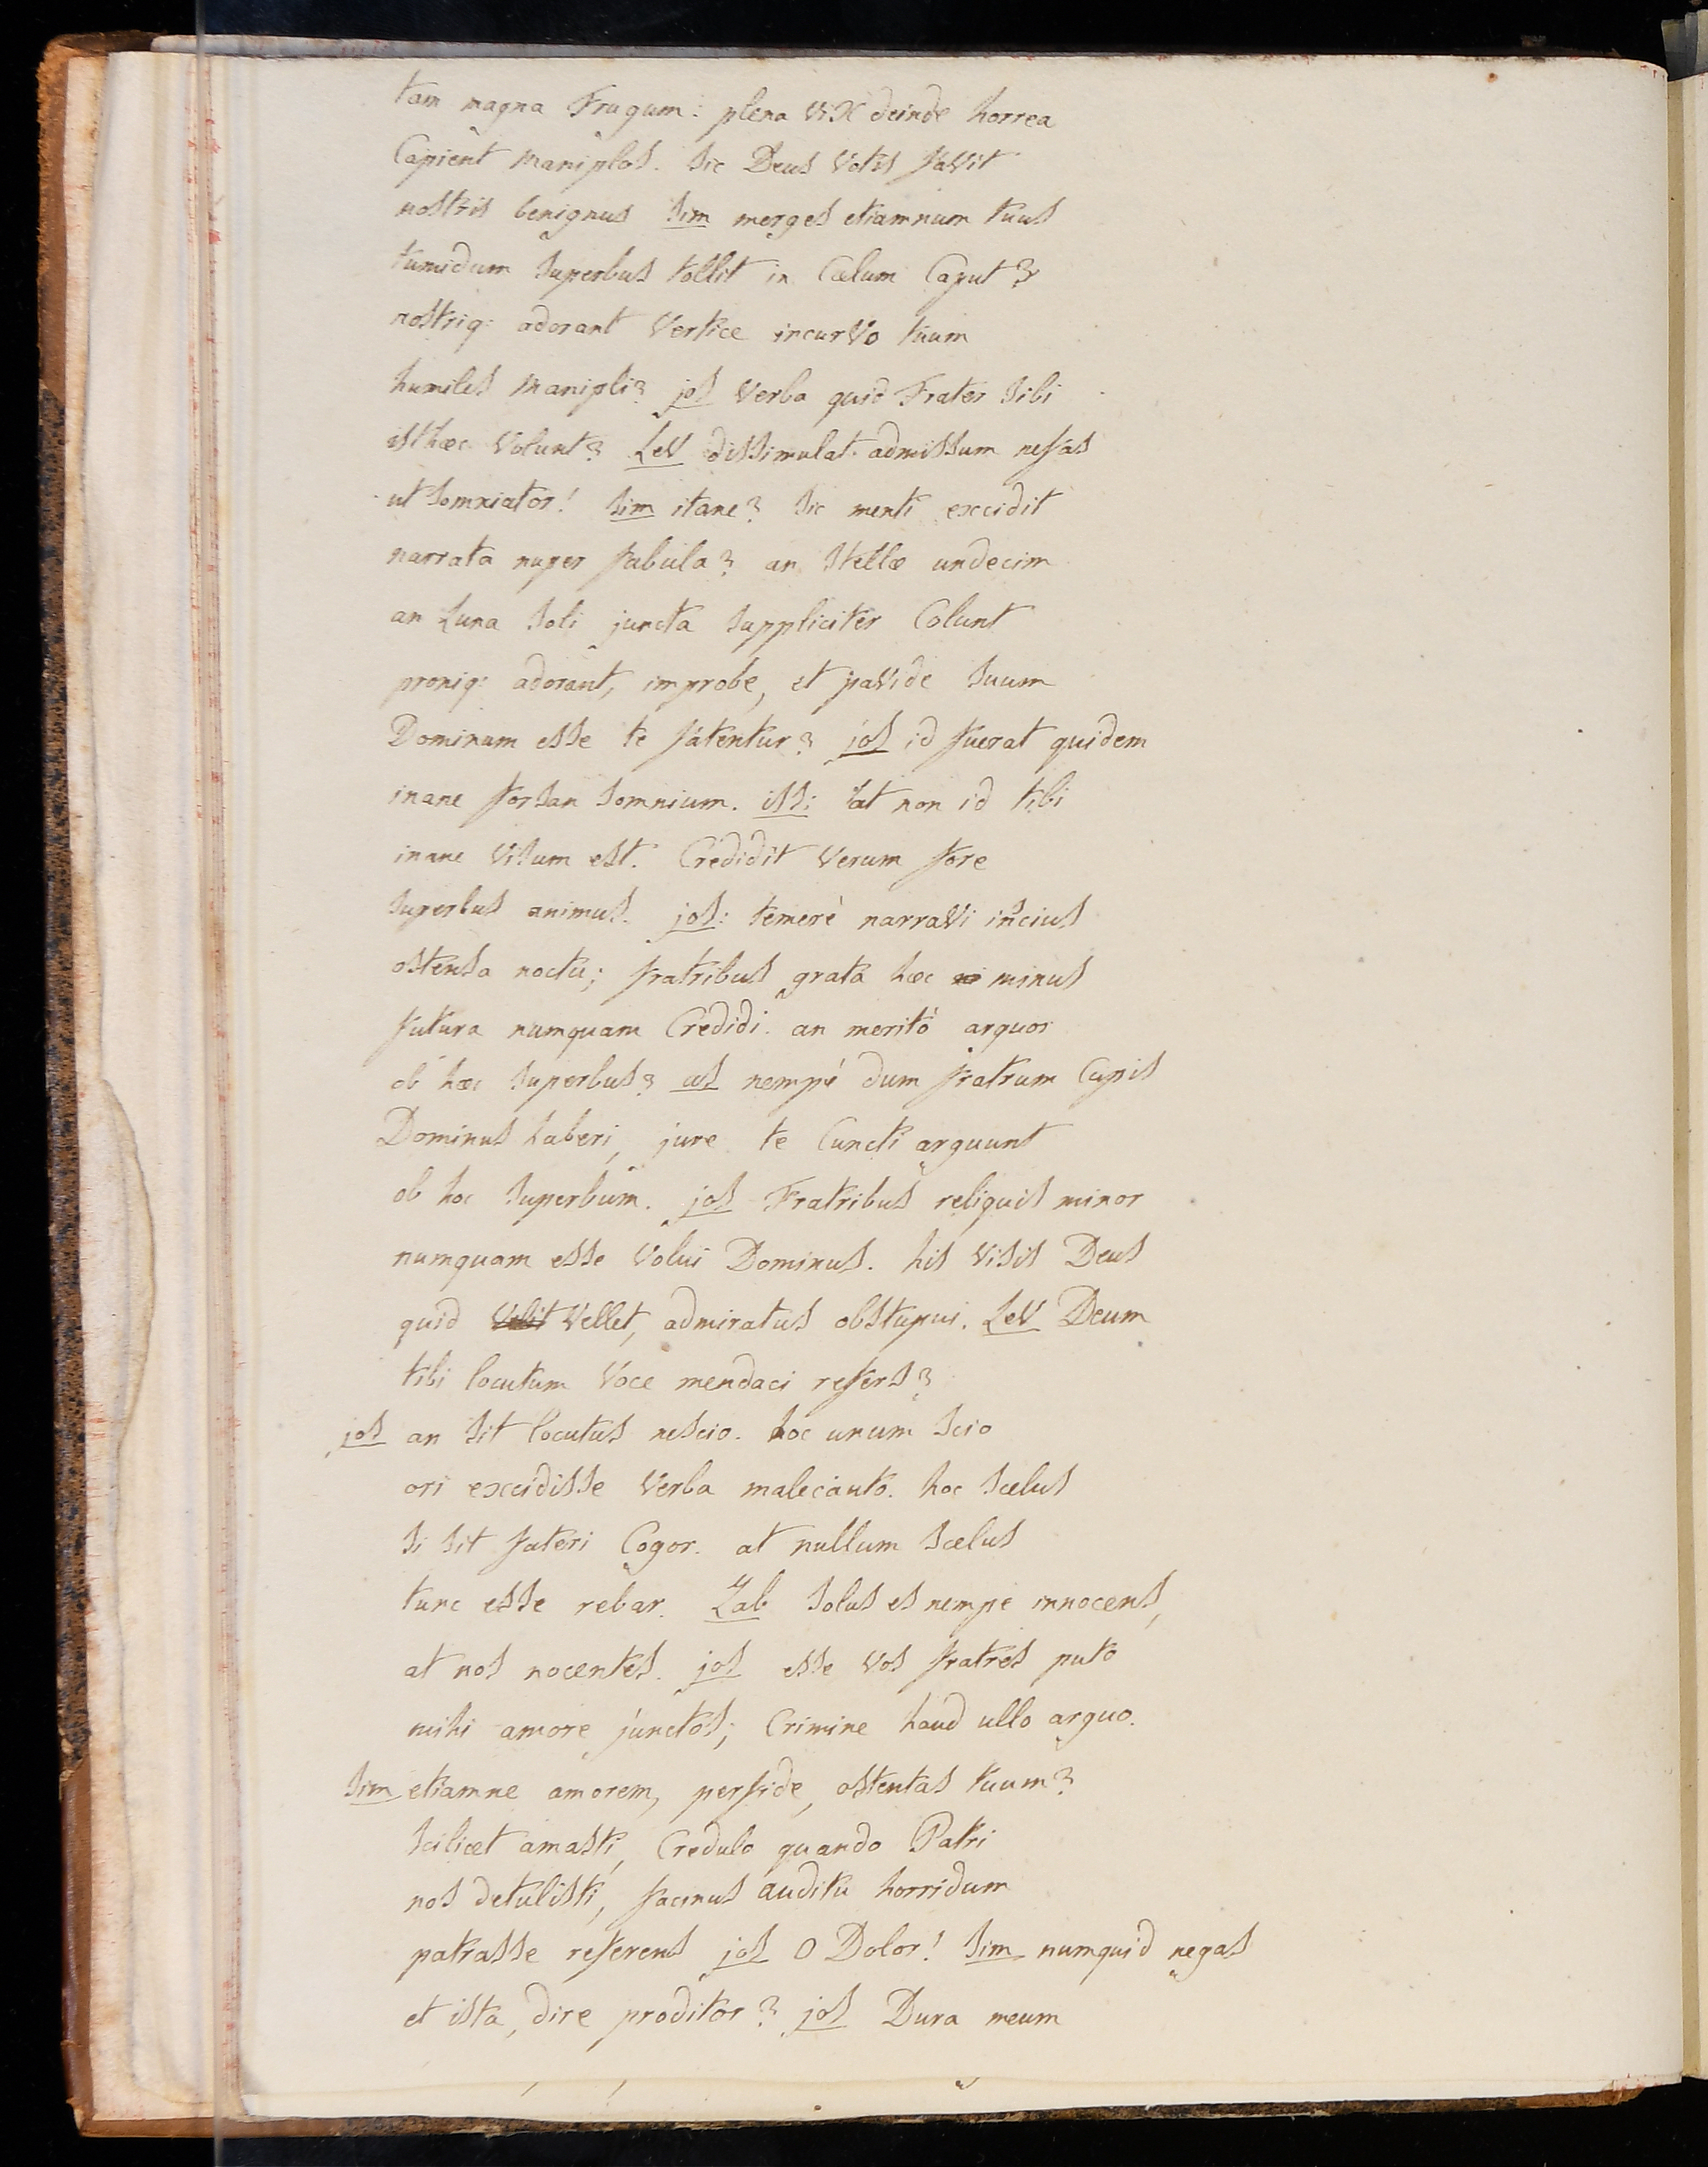 tam magna Frugum: plena viX deinde horrea
Capient Maniplos. sic Deus votis favit
nostris benignus Sim merges etiamnum tuus
tumidum superbus tollit in Cælum Caput?
nostriq: adorant vertice incurvo tuum
humiles Manipli? jos verba quid Frater sibi
isthæc volunt? Lev dissimulat admissum nefas
ut somniator! Sim itane? sic menti excidit
narrata nuper fabula? an stellæ undecim
an Luna soli juncta suppliciter Colunt
proniq: adorant, improbe, et pavide suum
Dominum esse te fatentur? jos id fuerat quidem
inane forsan somnium. iss: at non id tibi
inane visum est. Credidit verum fore
superbus animus. jos: temerè narravi inscius
ostensa noctu; fratribus grata hæc minus
futura numquam Credidi. an meritò arguor
ob hæc superbus? as nempè dum fratrum Cupis
Dominus haberi, jure te Cuncti arguunt
ob hoc superbum. jos Fratribus reliquis minor
numquam esse volui Dominus. his visis Deus
quid velit vellet, admiratus obstupui. Lev Deum
tibi locutum voce mendaci refers?
jos an sit locutus nescio. hoc unum scio
ori excidisse verba malecauto. hoc scelus
si sit fateri Cogor. at nullum scelus
tunc esse rebar. Zab solus es nempe innocens,
at nos nocentes. jos esse vos fratres puto
mihi amore junctos; Crimine haud ullo arguo.
Sim etiamne amorem, perfide, ostentas tuum?
scilicet amasti, Credulo quando Patri
nos detulisti, facinus auditu horridum
patrasse referens jos O Dolor! Sim numquid negas
et ista, dire proditor? jos Dura meum